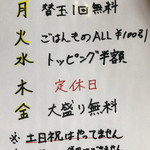 月 替玉1回無料
火 ごはんものALL ¥100引
水 トッピング半額
木 定休日
金 大盛り無料
※土日祝はやってません